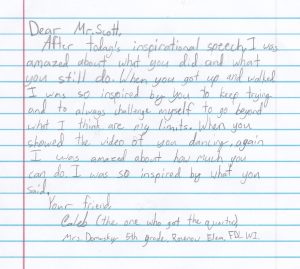 Dear Mr. Scott,
After today's inspirational speech, I was
amazed about what you did and what
you still do. When you got up and walked
I was so inspired by you to keep trying
and to always challenge myself to go beyond
what I think are my limits. When you
showed the video of you dancing, again
I was amazed about how much you
can do. I was so inspired by what you
said.
Your friend,
Caleb (the one who got the quarter)
Mrs. 5th grade, Elem, FDL WI.